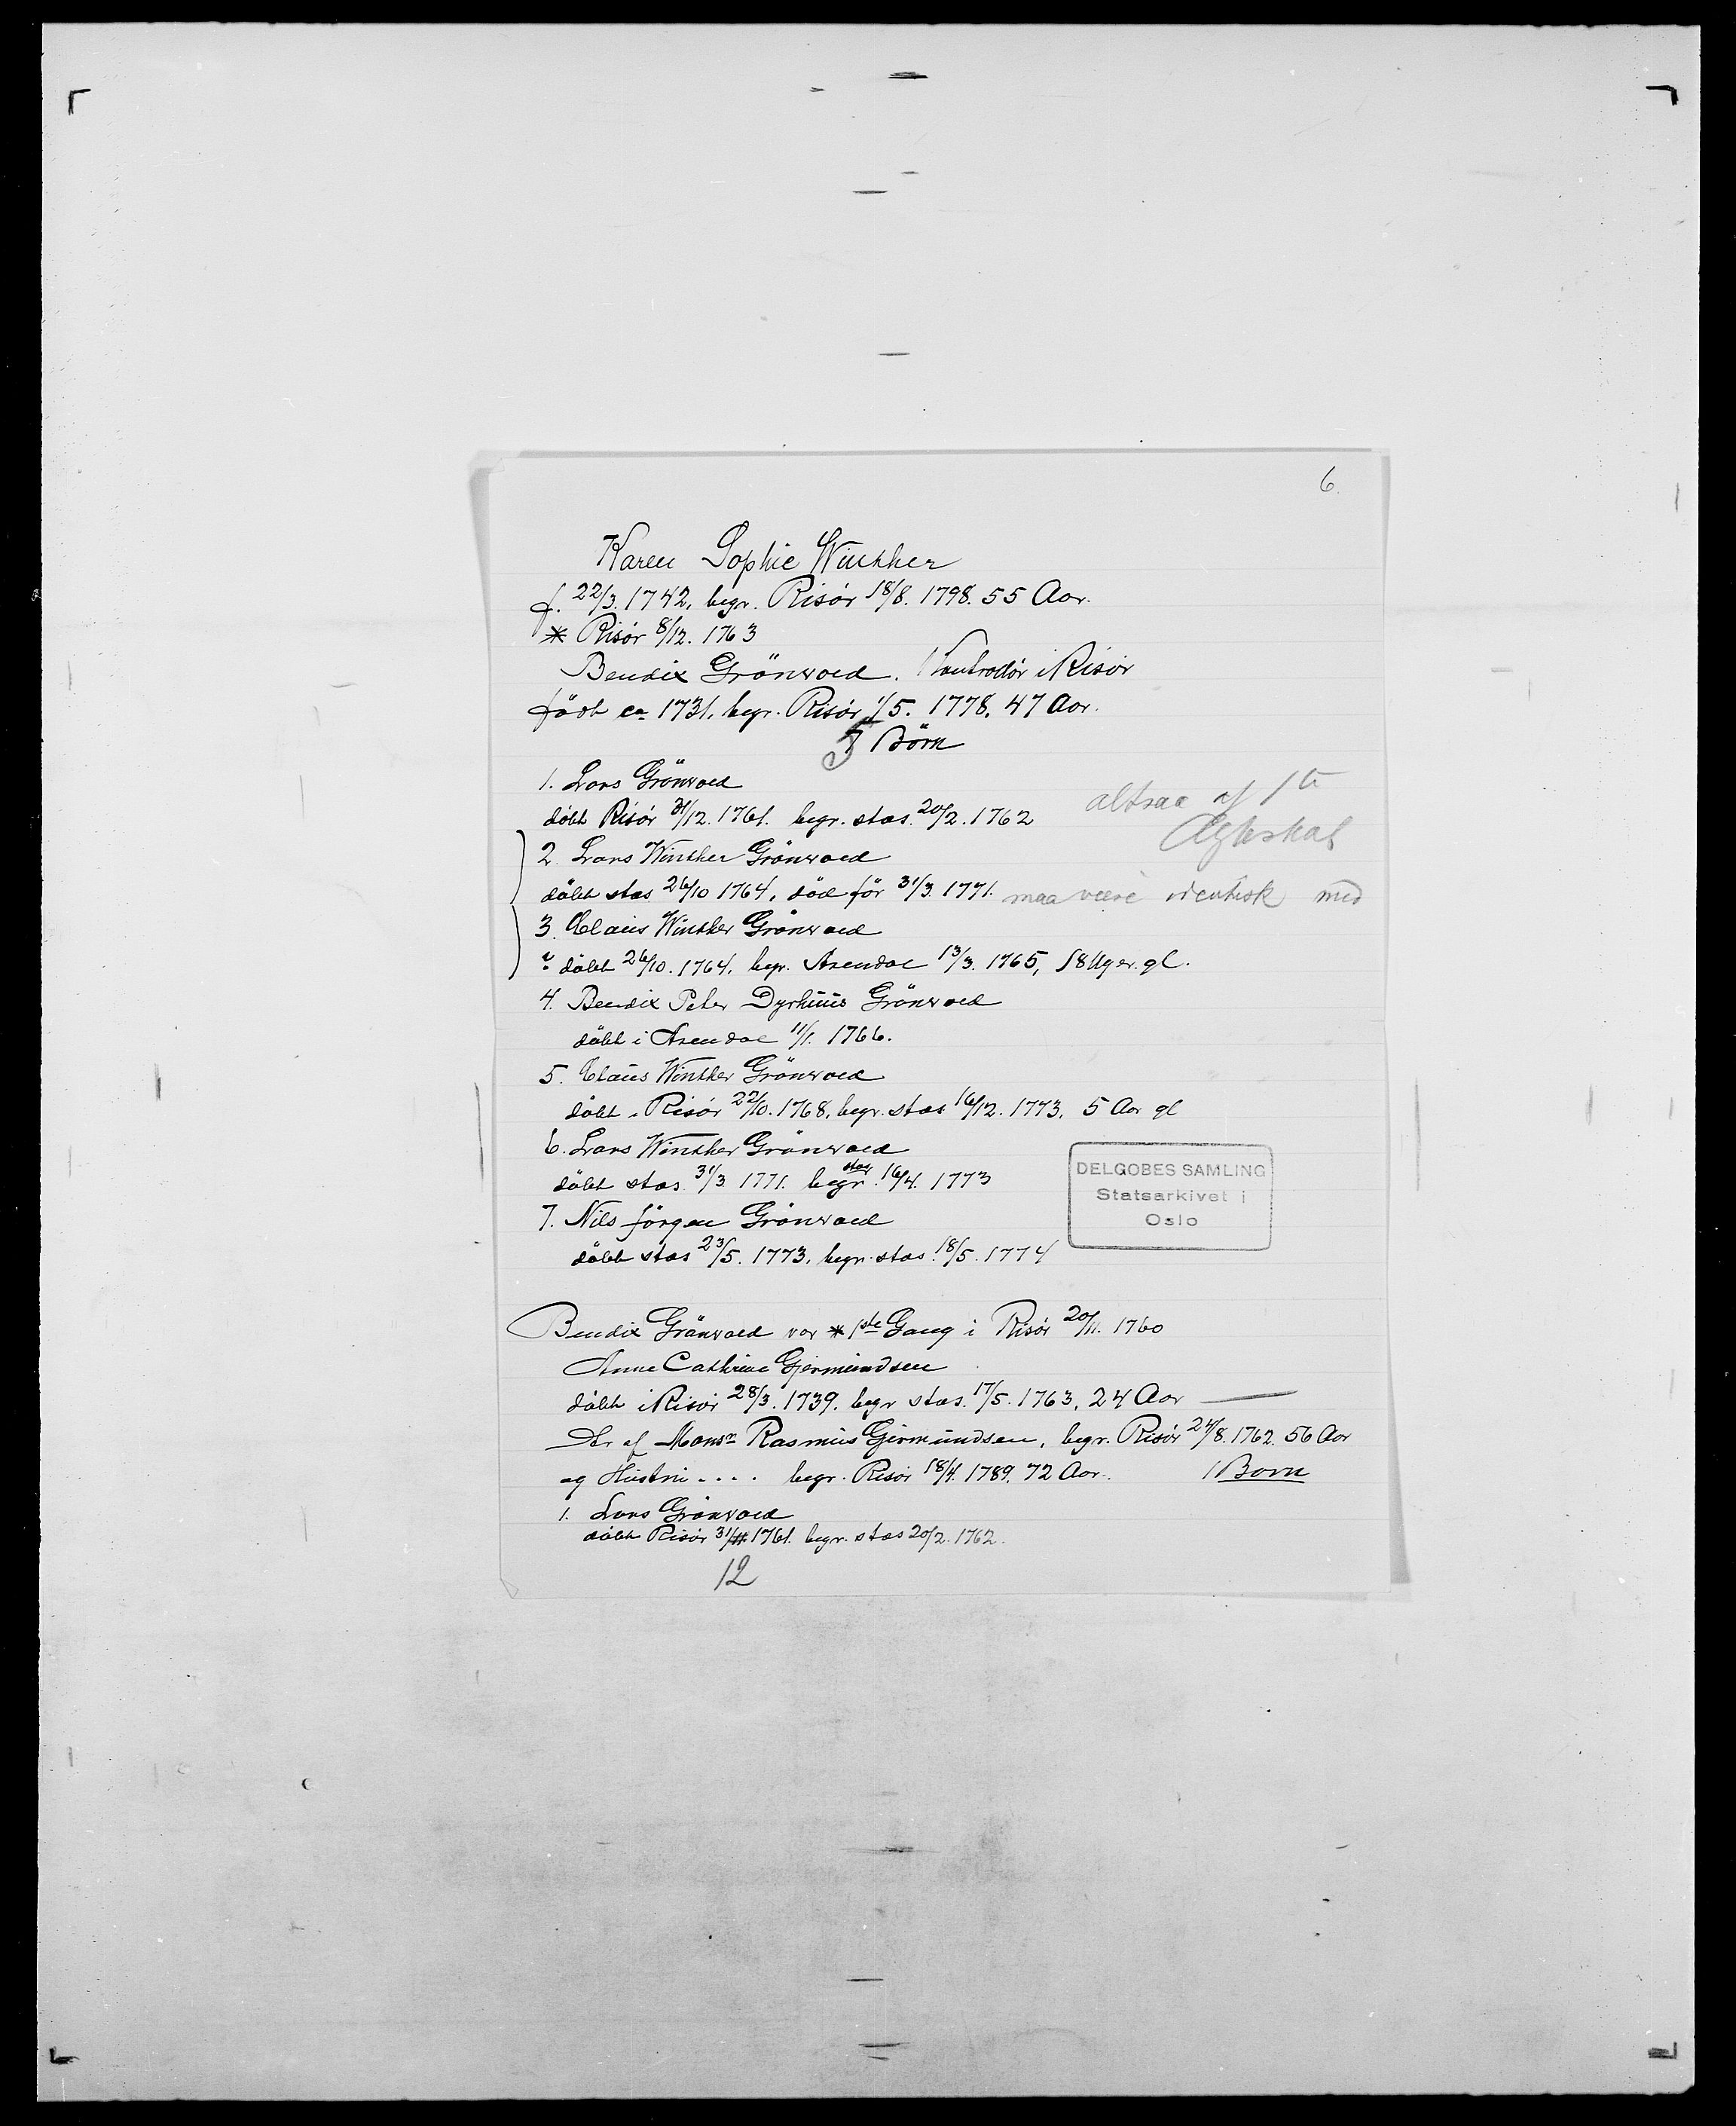 6.
Karen Sophie Winther
f. 22/3. 1742, begr. Risör 18/8. 1798. 55 Aar.
* Risör 8/12. 1763
Bendix Grönvold. Kontrollör i Risör
född ca 1731. begr. Risör 1/5. 1778. 47 Aar.
7 Börn
1. Lars Grönvold
döbt Risör 31/12. 1761. begr. stds. 20/2. 1762
altsaa af 1te
Ægteskab
2. Lars Winther Grönvold
döbt stds 26/10 1764, död för 31/3. 1771. maa være identisk med
3. Claus Winther Grönvold
? döbt 26/10. 1764. begr. Arendal 13/3. 1765, 18 Uger. gl.
4. Bendix Peter Dyrhuus Grönvold
döbt i Arendal 11/1. 1766.
5. Claus Winther Grönvold
döbt i Risör 22/10. 1768, begr. stds 16/12. 1773. 5 Aar gl
6. Lars Winther Grönvold
döbt stds. 31/3. 1771. begr. stds 16/4. 1773
7. Nils Jörgen Grönvold
döbt stds 23/5. 1773, begr. stds. 18/5. 1774
DELGOBES SAMLING
Statsarkivet i
Oslo
Bendix Grönvold var * 1ste Gang i Risör 20/11. 1760
Anne Cathrine Gjermundsen
döbt i Risör 28/3. 1739. begr stds. 17/5. 1763, 24 Aar
Dtr. af Monsr Rasmus Gjermundsen, begr. Risör 24/8. 1762. 56 Aar
og Hustru .... begr. Risör 18/4. 1789. 72 Aar. 1 Barn
1. Lars Grönvold
döbt Risör 31/ 1761. begr. stds 20/2. 1762.
12